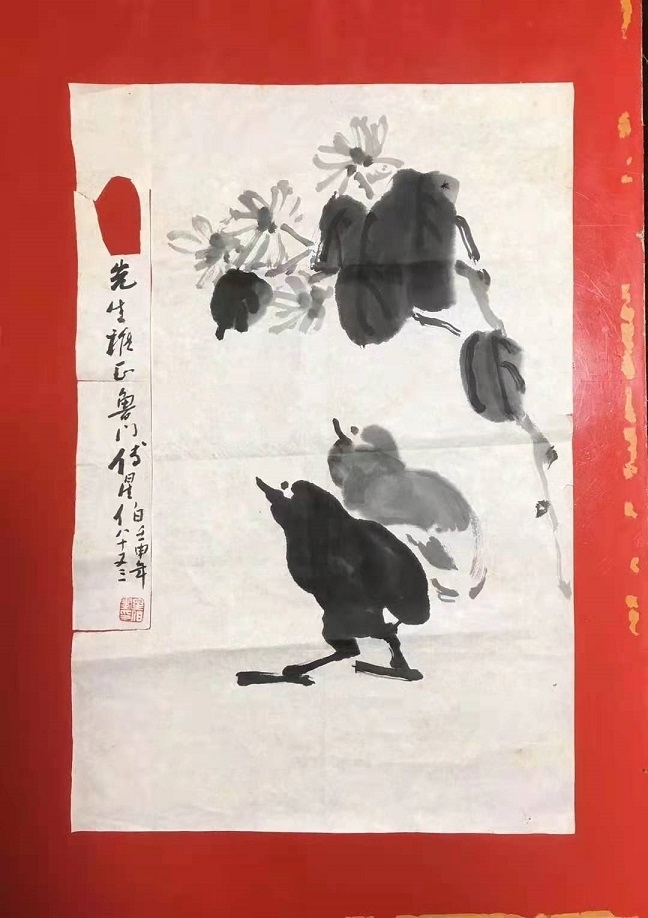 先生雅正魯门傅星伯
壬申年
八十又三